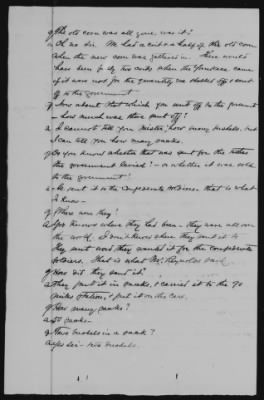 q The old corn was all gone, was it?
a Oh no sir. We had a crib & a half of the old corn
when the new corn was gathered in. There would
have been to fill two cribs when the Yankees came
if it was not for the quantity we shelled off & sent
off to the government
q How about that which you sent off to the government
- how much was there sent off?
a I cannot tell you Mister, how many bushels, but
I can tell you how many sacks.
q Do you know whether that was sent for the tithes
the government levied? - or whether it was sold
to the government?
a He sent it to the Confederate soldiers that is what
I know -
q Where were they?
a God knows where they has been - they were all over
the world. I don't know where they sent it to
they sent word they wanted it for the confederate
soldiers. That is what Mr. Reynolds said.
q How did they send it?
a They put it in sacks, & carried it to the 90
miles station, & put it on the cars.
q How many sacks?
a 50 sacks -
q How bushels in a sack?
a yes sir - two bushels.